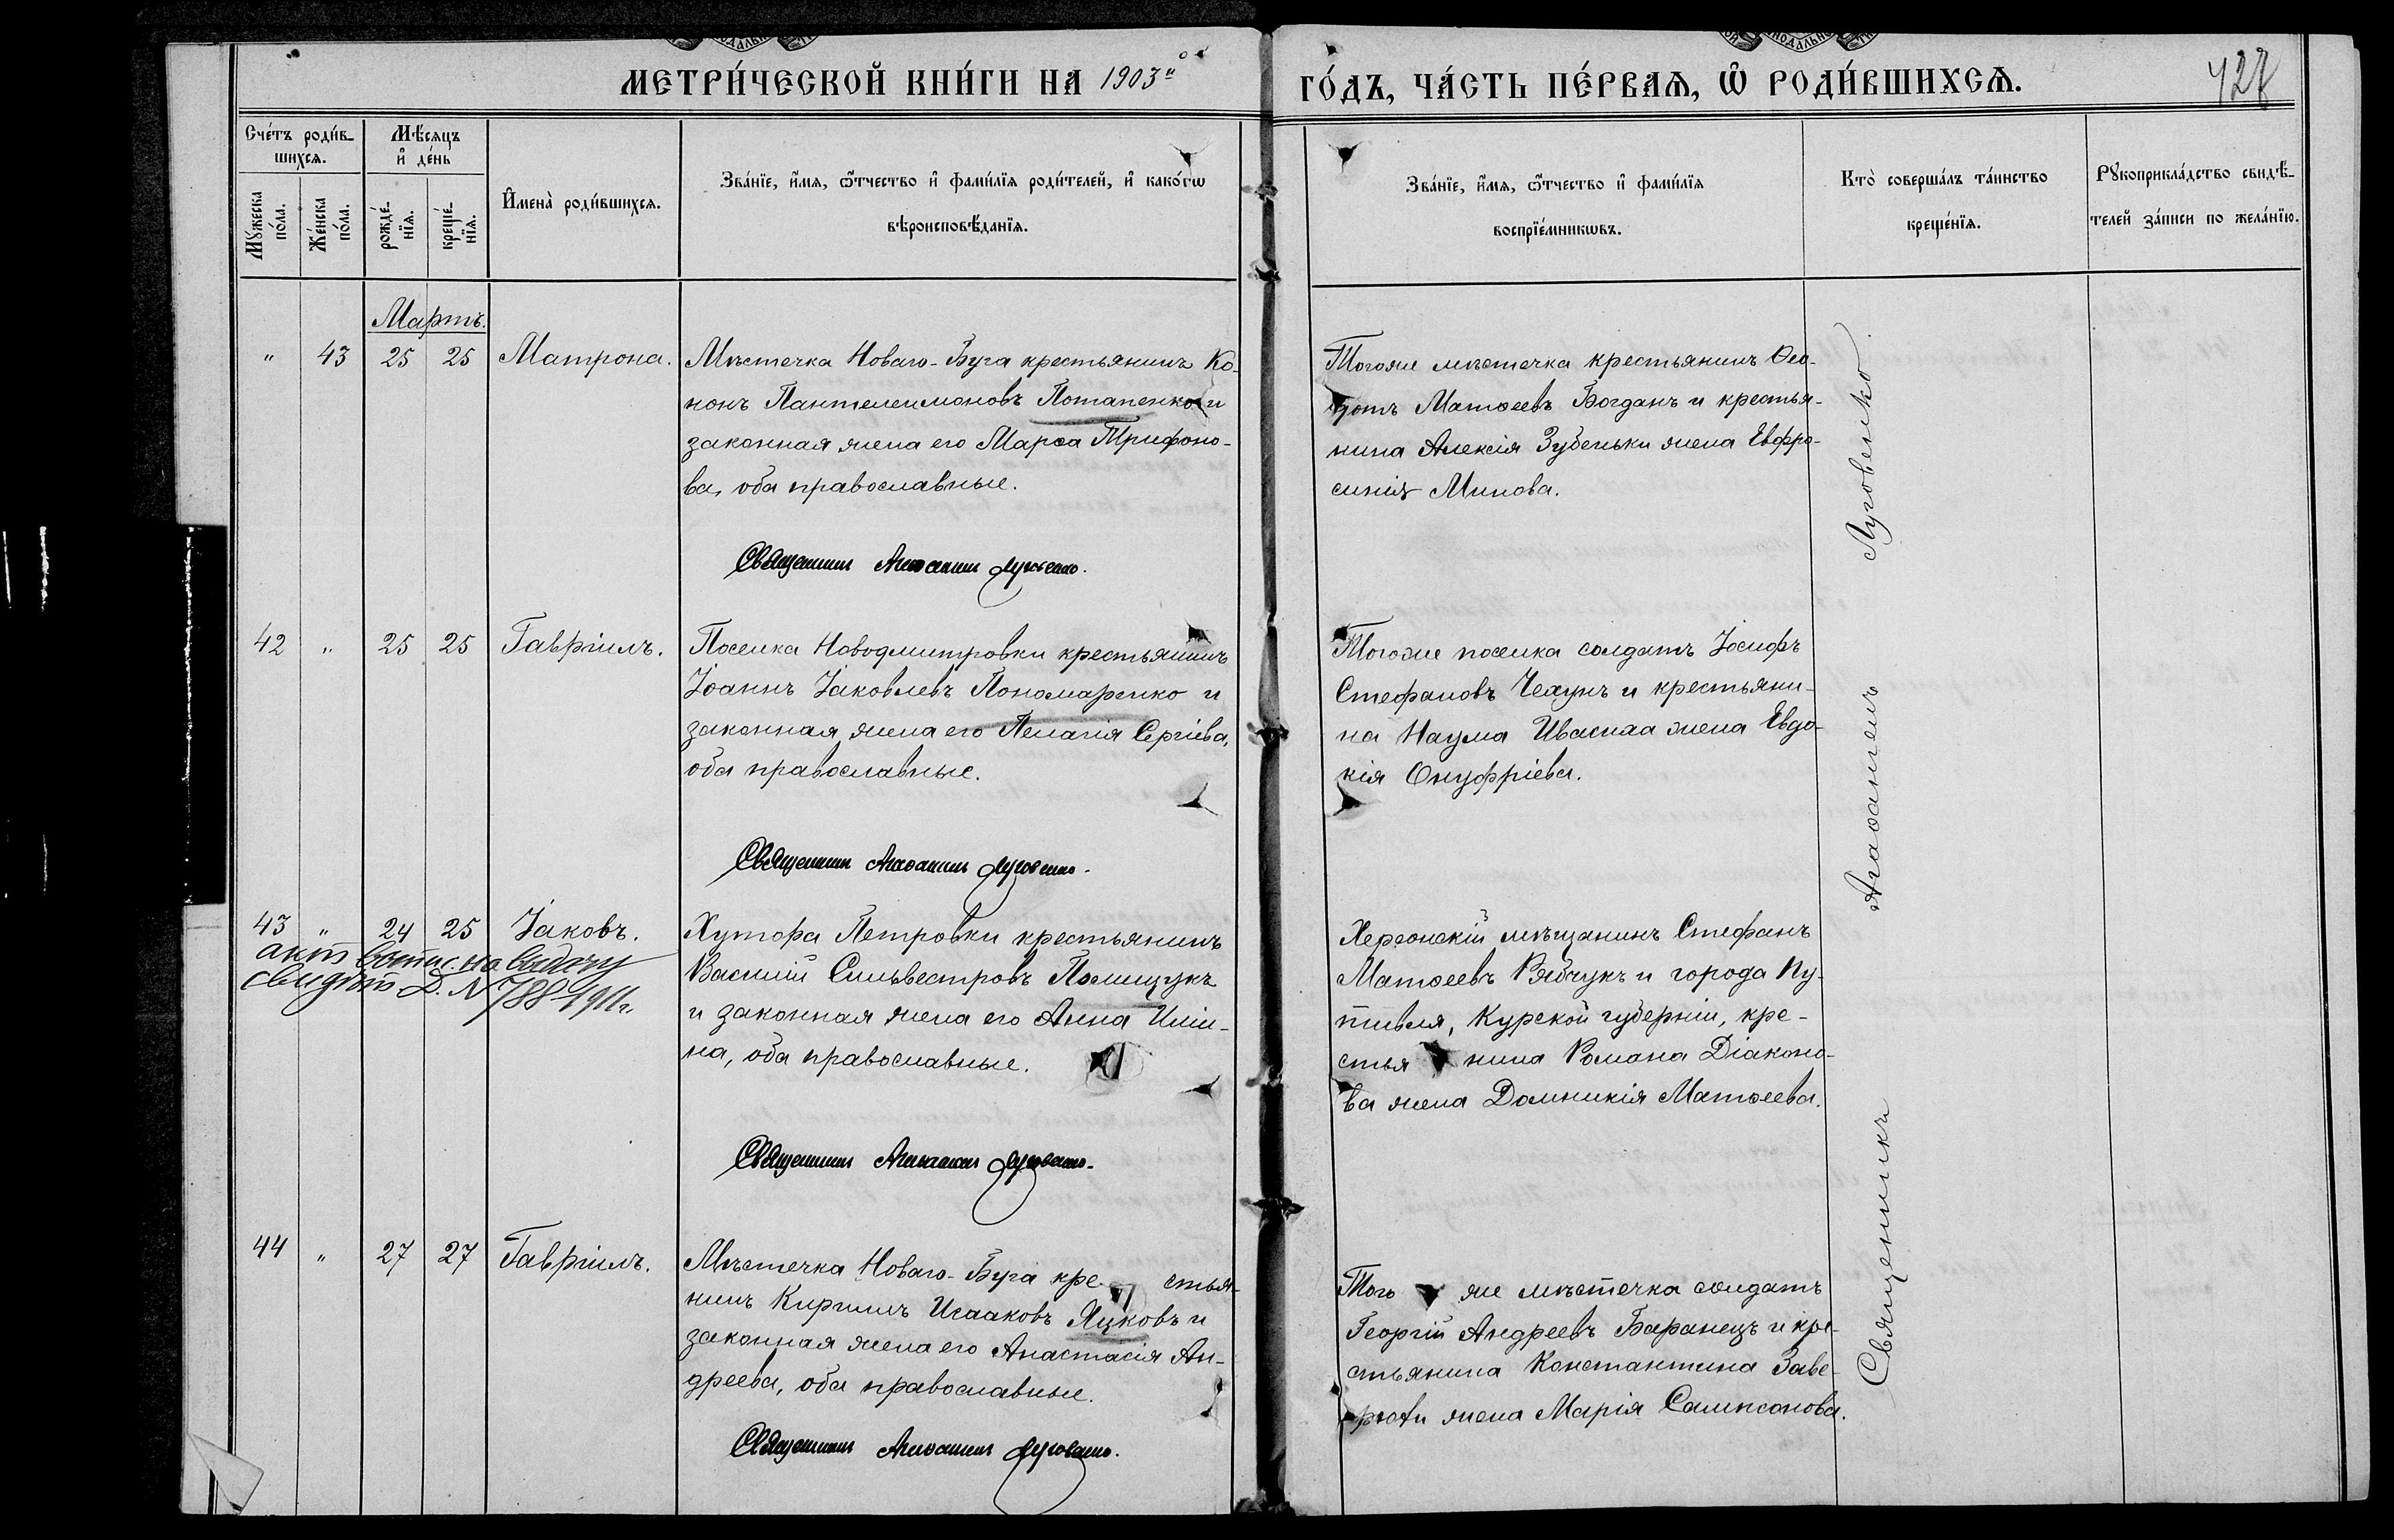 МЕТРИ́ЧЕСКОЙ КНИ́ГИ НА 1903й ГО́ДЪ, ЧА́СТЬ ПЕ́РВАѦ, Ѡ РОДИ́ВШИХСѦ.
Сче́тъ роди́в-
шихсѧ.
Мꙋ́жеска
по́ла.
Же́нска
по́ла.
Мѣ́сѧцъ
и҆ де́нь
рожде́-
нїѧ.
креще́-
нїѧ.
И҆мена̀ роди́вшихсѧ.
Зва́нїе, и҆́мѧ, ѻ҆́тчество и҆ фами́лїѧ роди́телей, и҆ како́гѡ
вѣроисповѣ́данїѧ.
Зва́нїе, и҆́мѧ, ѻ҆́тчество и҆ фами́лїѧ
воспрїе́мникѡвъ.
Кто̀ соверша́лъ та́инство
креще́нїѧ.
Рꙋкоприкла́дство свидѣ́-
телей за́писи по жела́нїю.
Мартъ.
" 43 25 25 Матрона.
Мѣстечка Новаго-Буга крестьянинъ Ко-
нонъ Пантелеимоновъ Потапенко и
законная жена его Марѳа Трифоно-
ва, оба православные.
Священникъ Агаѳангелъ Луговенко.
Тогоже мѣстечка крестьянинъ Ѳео-
дотъ Матѳеевъ Богданъ и крестья-
нина Алексія Зубеньки жена Евфро-
синія Минова.
42 " 25 25 Гавріилъ.
Поселка Новодмитровки крестьянинъ
Іоаннъ Іаковлевъ Пономаренко и
законная жена его Пелагія Сергіева,
оба православные.
Священникъ Агаѳангелъ Луговенко.
Тогоже поселка солдатъ Іосифъ
Стефановъ Чехунъ и крестьяни-
на Наума Ивасика жена Евдо-
кія Онуфріева.
43 " 24 25 Іаковъ.
актъ выпис. на выдачу
свидѣт. Д. N 788-1911г.
Хутора Петровки крестьянинъ
Василій Сильвестровъ Полищукъ
и законная жена его Анна Иліи-
на, оба православные.
Священникъ Агаѳангелъ Луговенко.
Херсонскій мѣщанинъ Стефанъ
Матѳеевъ Рябчукъ и города Пу-
тивля, Курской губерніи, кре-
стьянина Романа Діаконо-
ва жена Домникія Матѳеева.
44 " 27 27 Гавріилъ.
Мѣстечка Новаго-Буга крестья-
нинъ Кириллъ Исааковъ Яцковъ и
законная жена его Анастасія Ан-
дреева, оба православные.
Священникъ Агаѳангелъ Луговенко.
Того же мѣстечка солдатъ
Георгій Андреевъ Баранецъ и кре-
стьянина Константина Заве-
рюхи жена Марія Сампсонова.
Священникъ Агаѳангелъ Луговенко